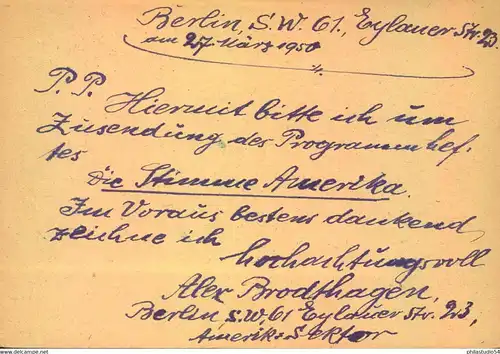 Berlin S.W. 61., Eylauer Str. 23.
am 27. März 1950
P.P. Hiermit bitte ich um
Zusendung des Programmhef-
tes
Die Stimme Amerika.
Im Voraus bestens dankend,
zeichne ich
hochachtungsvoll
Alex Brodthagen,
Berlin S.W. 61 Eylauer Str. 23,
Amerik. Sektor
philastudio54